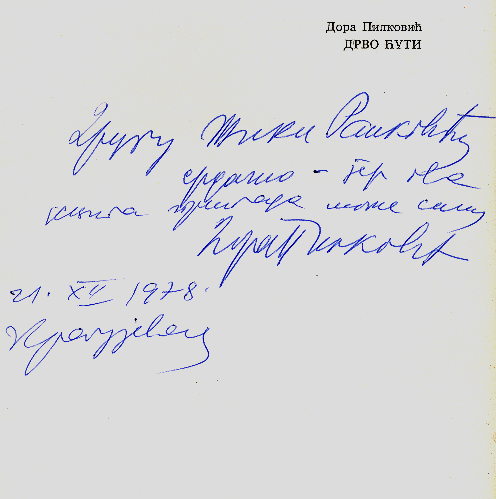 Дора Пилковић
ДРВО ЋУТИ
Другу Жики Ранковићу
срдачно – јер ова
књига припада може
Дора Пилковић
21. XII 1978.
Крагујевац